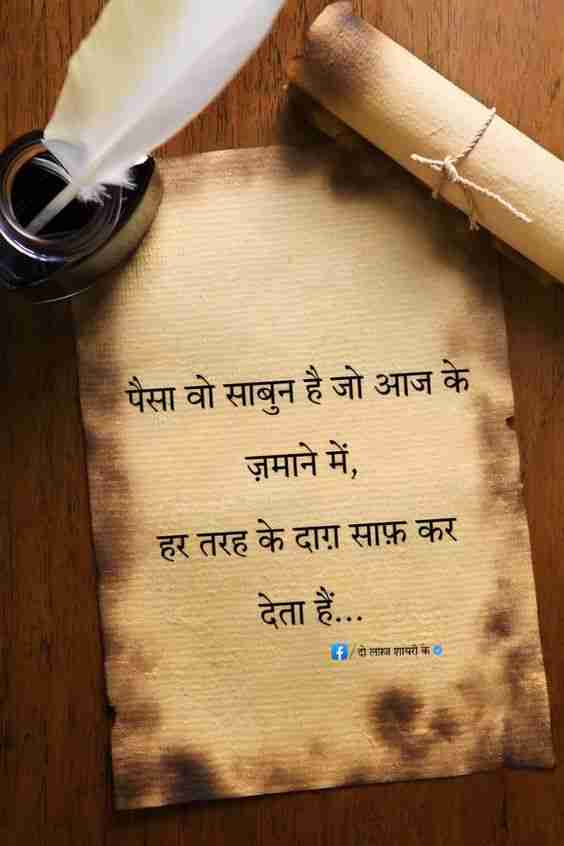 पैसा वो साबुन है जो आज के
ज़माने में,
हर तरह के दाग़ साफ़ कर
देता हैं...
/दो लफ़्ज शायरी के